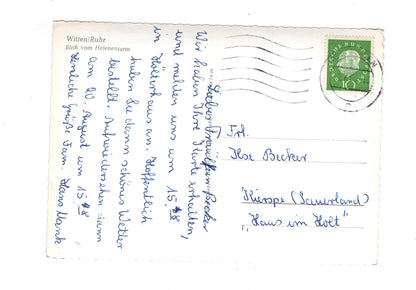 Witten/Ruhr
Blick vom Helenenturm
Liebes Fräulein Becker
Wir haben Ihre Karte erhalten,
und melden uns um 15.48
in Hülterhaus an. Hoffentlich
haben Sie dann schönes Wetter
bestellt. Aufwiedersehen dann
Am 20. August um 15.48
Herzliche Grüße Fam. Hans Menk
DEUTSCHE BUNDESPOST
10
Frl.
Ilse Becker
Kierspe (Sauerland)
„Haus im Holt"